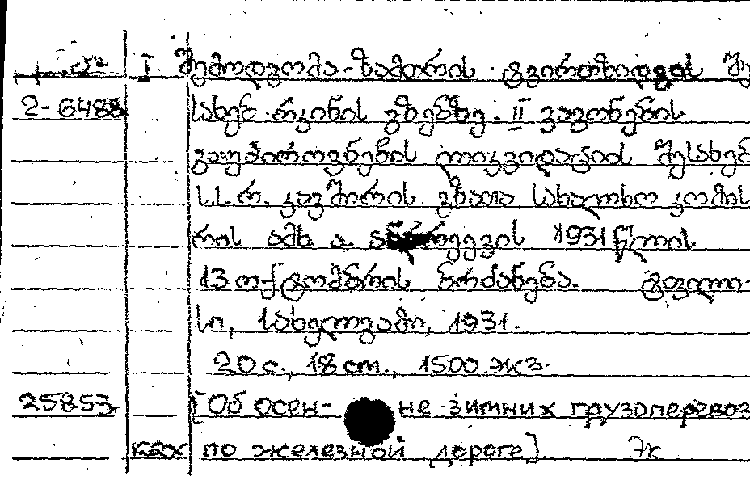 I შემოდგომა-ზამთრის გვირთზიდვის შე
2-6488 სახებ რკინის გზებზე. II ვაგონების
გაუპიროვნების ლიკვიდაციის შესახებ
ს.ს.რ. კავშირის გზათა სახალხო კომის
რის ამხ. ა. ანდრეევის 1931 წლის
13 ოქტომბრის ბრძანება. ტფილი-
სი, სახელგამი, 1931.
20 с., 18 см., 1500 экз.
25853 [Об осен- не зимних грузоперевоз
ках по железной дороге] Эк